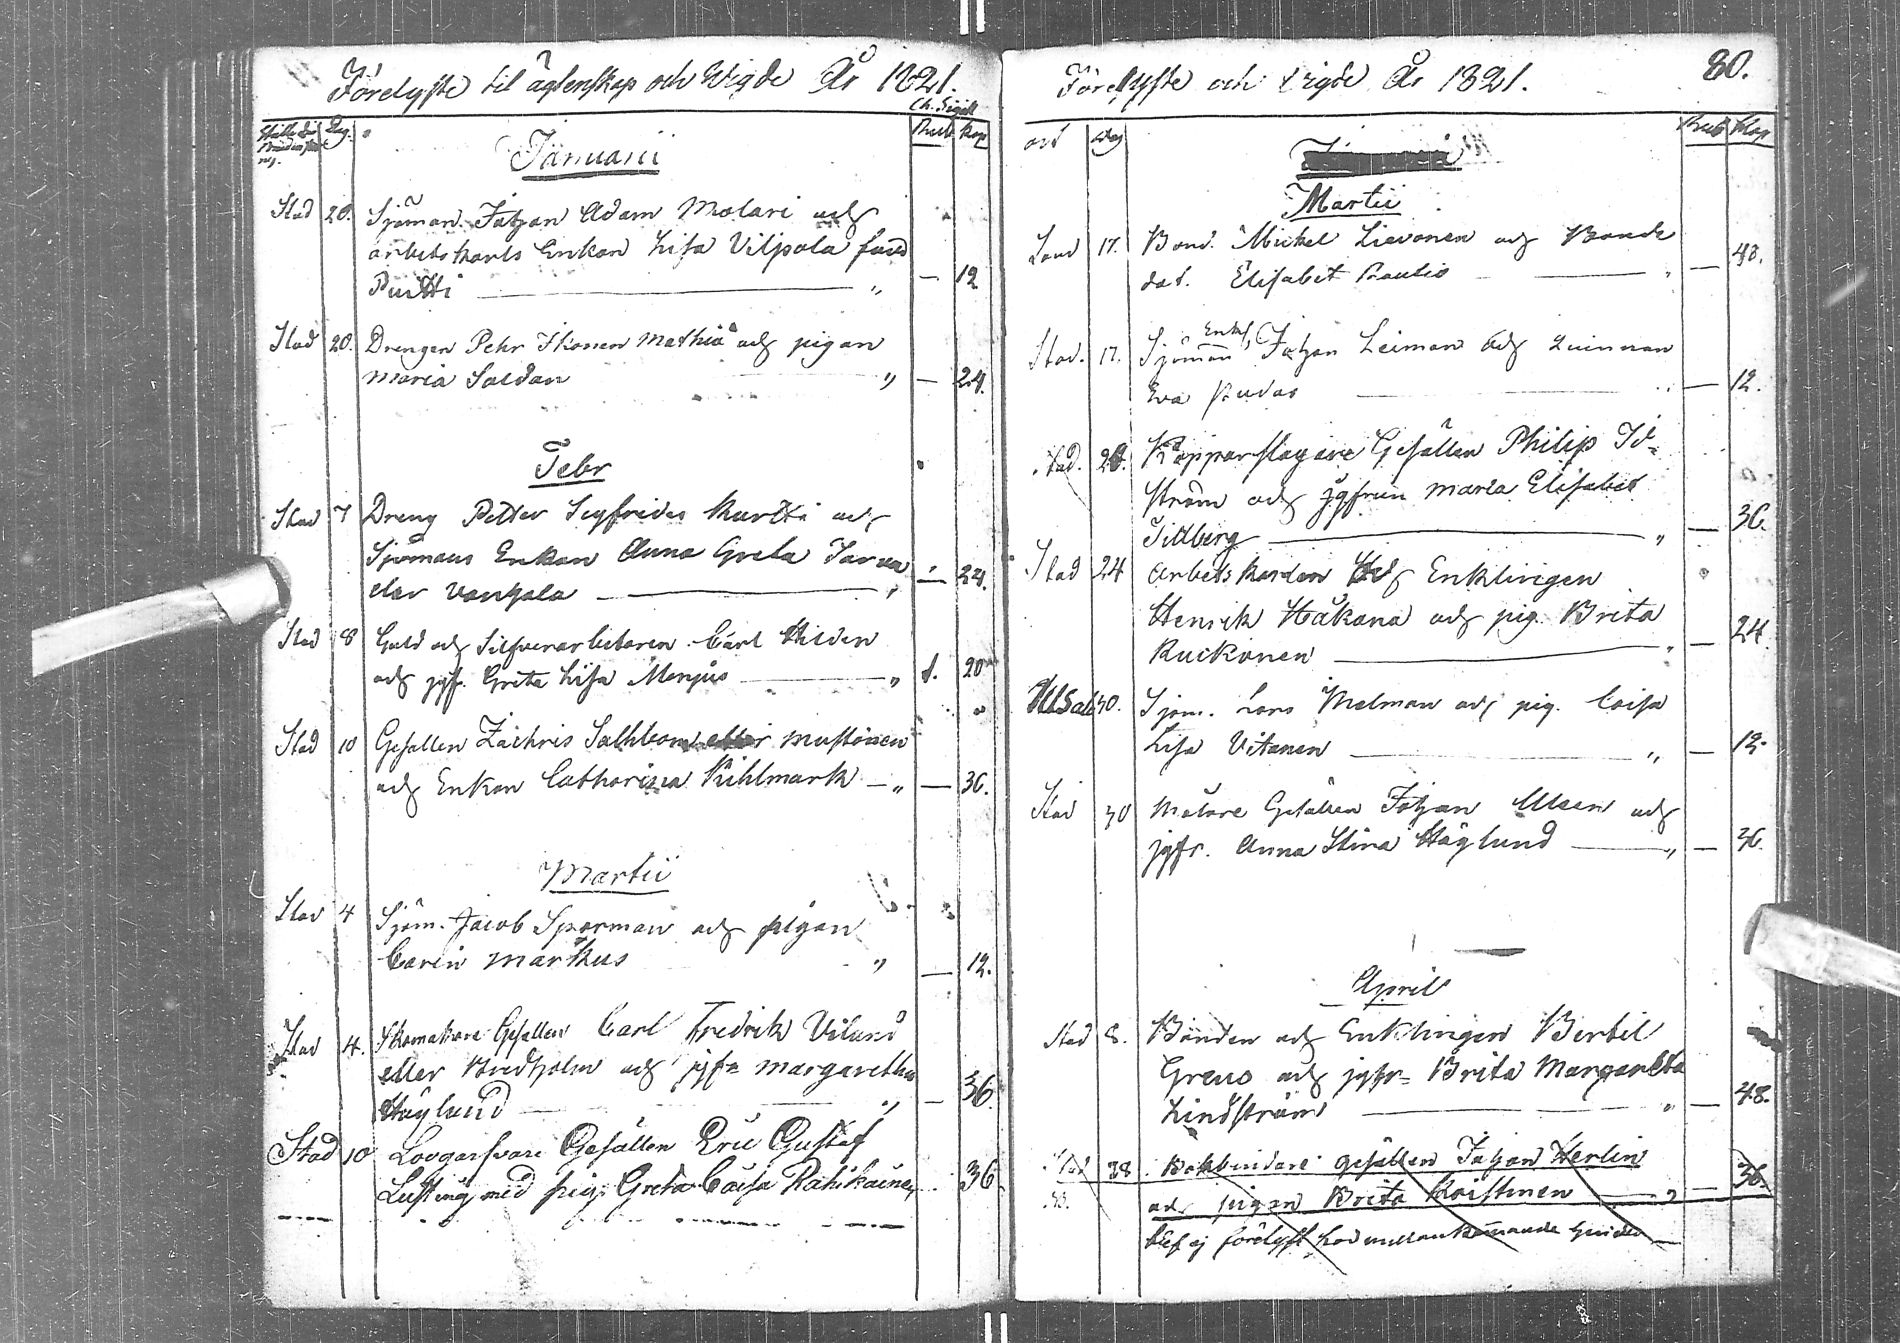 Förelyste til ägtenskap och Wigde År 1821.
Ch. Sigill
Dag. Rub Kop
Januarii
Stad 20. Sjöman Johan Adam Molari och
arbetskarls Enkan Lisa Vilpola född
Purtti — " — 12
Stad 20. Drengen Pehr Ikonen Mathiä och pigan
Maria Soldan " — 24.
Febr
Stad 7 Dreng Petter Seyfridss Kurtti och
Sjömans Enkan Anna Greta Jarva
eler Vanhala — " — 24.
Stad 8 Guld och Silfverarbetaren Carl Hilden
och jgf. Greta Lisa Menjus — " 1. 20
Stad 10 Gesällen Zachris Sahlbom eller Mustonen
och Enkan Catharina Kihlmark — " — 36.
Martii
Stad 4 Sjöm. Jacob Sparman och pigan
Carin Markus " — 12.
Stad 4. Skomakare Gesällen Carl Fredrik Vilund
eller Bredholm och jgfr Margaretha
Häglund — " — 36.
Stad 10 Gesällen Eric Gustaf
med pig. Greta Caisa Rähikäinen 36
Förelyste och vigde År 1821. 80.
ort Dag Rub Kop
Martii
Land 17. Bond. Mickel Lievonen och Bonde
dot. Elisabet Rautio — " — 48.
Stad. 17. Sjöman Enkl. Johan Leiman och Quinnan
Eva Rudas — " — 12.
Stad. 20. Kopparslagare Gesällen Philip Id-
ström och Jgfrun Maria Elisabet
Tillberg — " — 36.
Stad 24 Arbets karlen och Enklingen
Henrik Håkana och pig. Brita
Ruikonen — " — 24.
30. Sjöm. Lars Melman och pig. Caisa
Lisa Vitanen — " — 12.
Stad 30 Målare Gesällen Johan Alsen och
jgfr. Anna Stina Häglund — " — 36.
April
Stad 8. Bonden och Enklingen Bertil
Greus och jgfr. Brita Margareta
Lindström — " — 48.
Stad 28. Bokbindare gesällen Johan Herlin
och pigan Brita Koistinen — " — 36.
blef ej förelyst för mellankommande hinder —